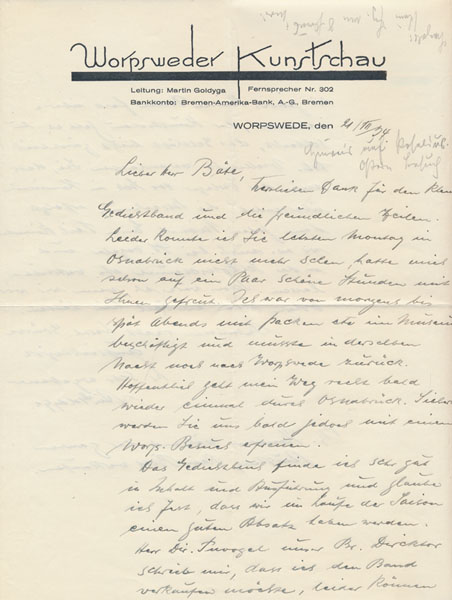 Worpsweder Kunstschau
Leitung: Martin Goldyga
Fernsprecher Nr. 302
Bankkonto: Bremen-Amerika-Bank, A.-G., Bremen
WORPSWEDE, den 21/VII 34
Lieber Herr Bäte,
Herzlichen Dank für den klein
Gedichtband und die freundlichen Zeilen.
Leider konnte ich Sie letzten Montag in
Osnabrück nicht mehr sehen, hatte mich
schon auf ein Paar schöne Stunden mit
Ihnen gefreut. Ich war von morgens bis
spät Abends mit packen etc im Museum
beschäftigt und musste in derselben
Nacht noch nach Worpswede zurück.
Hoffentlich geht mein Weg recht bald
wieder einmal durch Osnabrück. Sicher
werden Sie uns bald jedoch mit einem
Worps. Besuch erfreuen.
Das Gedichtbuch finde ich sehr gut
in Inhalt und Ausführung und glaube
ich fest, dass wir im Laufe der Saison
einen guten Absatz haben werden.
Herr Dir. unser Br. Direktor
schrieb mir, dass ich den Band
verkaufen möchte, leider können